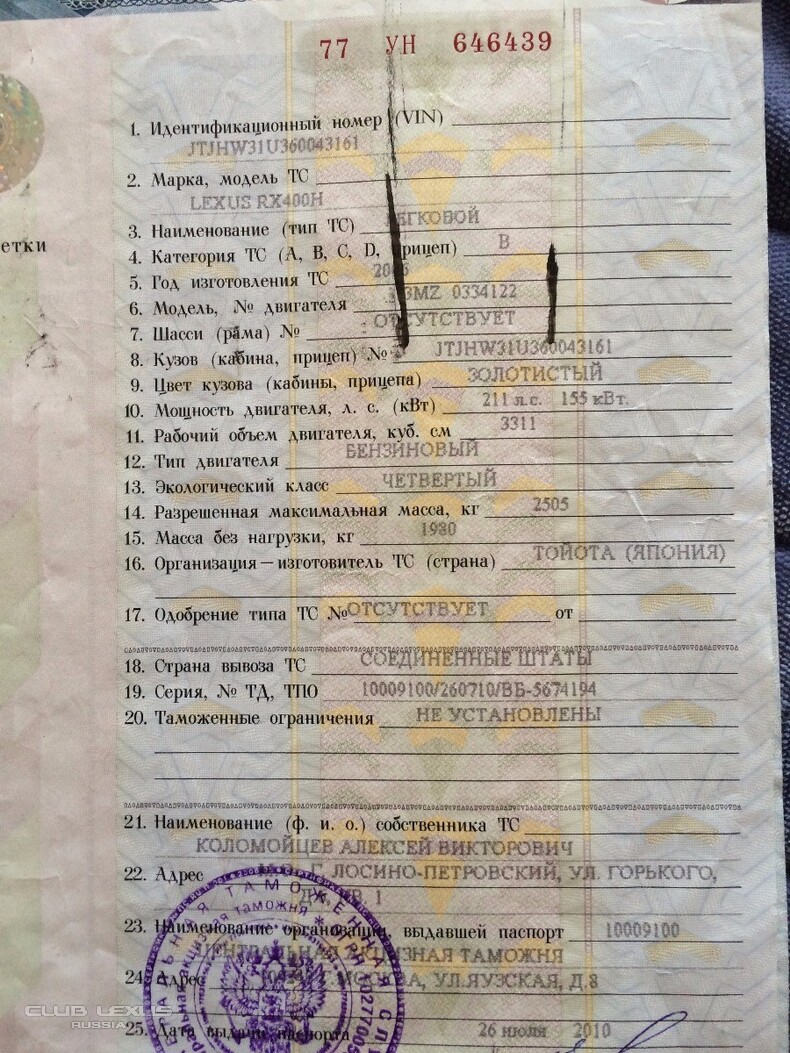 77 УН 646439
1. Идентификационный номер (VIN)
JTJHW31U360043161
2. Марка, модель ТС
LEXUS RX400H
3. Наименование (тип ТС) ЛЕГКОВОЙ
4. Категория ТС (A, B, C, D, прицеп) B
етки
5. Год изготовления ТС
6. Модель, № двигателя 0334122
7. Шасси (рама) № ОТСУТСТВУЕТ
8. Кузов (кабина, прицеп) № JTJHW31U360043161
9. Цвет кузова (кабины, прицепа) ЗОЛОТИСТЫЙ
10. Мощность двигателя, л. с. (кВт) 211 л.с. 155 кВт.
11. Рабочий объем двигателя, куб. см 3311
12. Тип двигателя БЕНЗИНОВЫЙ
13. Экологический класс ЧЕТВЕРТЫЙ
14. Разрешенная максимальная масса, кг 2505
15. Масса без нагрузки, кг 1980
16. Организация — изготовитель ТС (страна) ТОЙОТА (ЯПОНИЯ)
17. Одобрение типа ТС № ОТСУТСТВУЕТ от
18. Страна вывоза ТС СОЕДИНЕННЫЕ ШТАТЫ
19. Серия, № ТД, ТПО 10009100/260710/ВБ-5674194
20. Таможенные ограничения НЕ УСТАНОВЛЕНЫ
21. Наименование (ф. и. о.) собственника ТС
КОЛОМОЙЦЕВ АЛЕКСЕЙ ВИКТОРОВИЧ
22. Адрес Г. ЛОСИНО-ПЕТРОВСКИЙ, УЛ. ГОРЬКОГО,
1
23. Наименование организации, выдавшей паспорт 10009100
ЦЕНТРАЛЬНАЯ АКЦИЗНАЯ ТАМОЖНЯ
24. Адрес МОСКВА, УЛ.ЯУЗСКАЯ, Д.8
25. Дата выдачи паспорта 26 июля 2010
CLUB LEXUS
RUSSIA